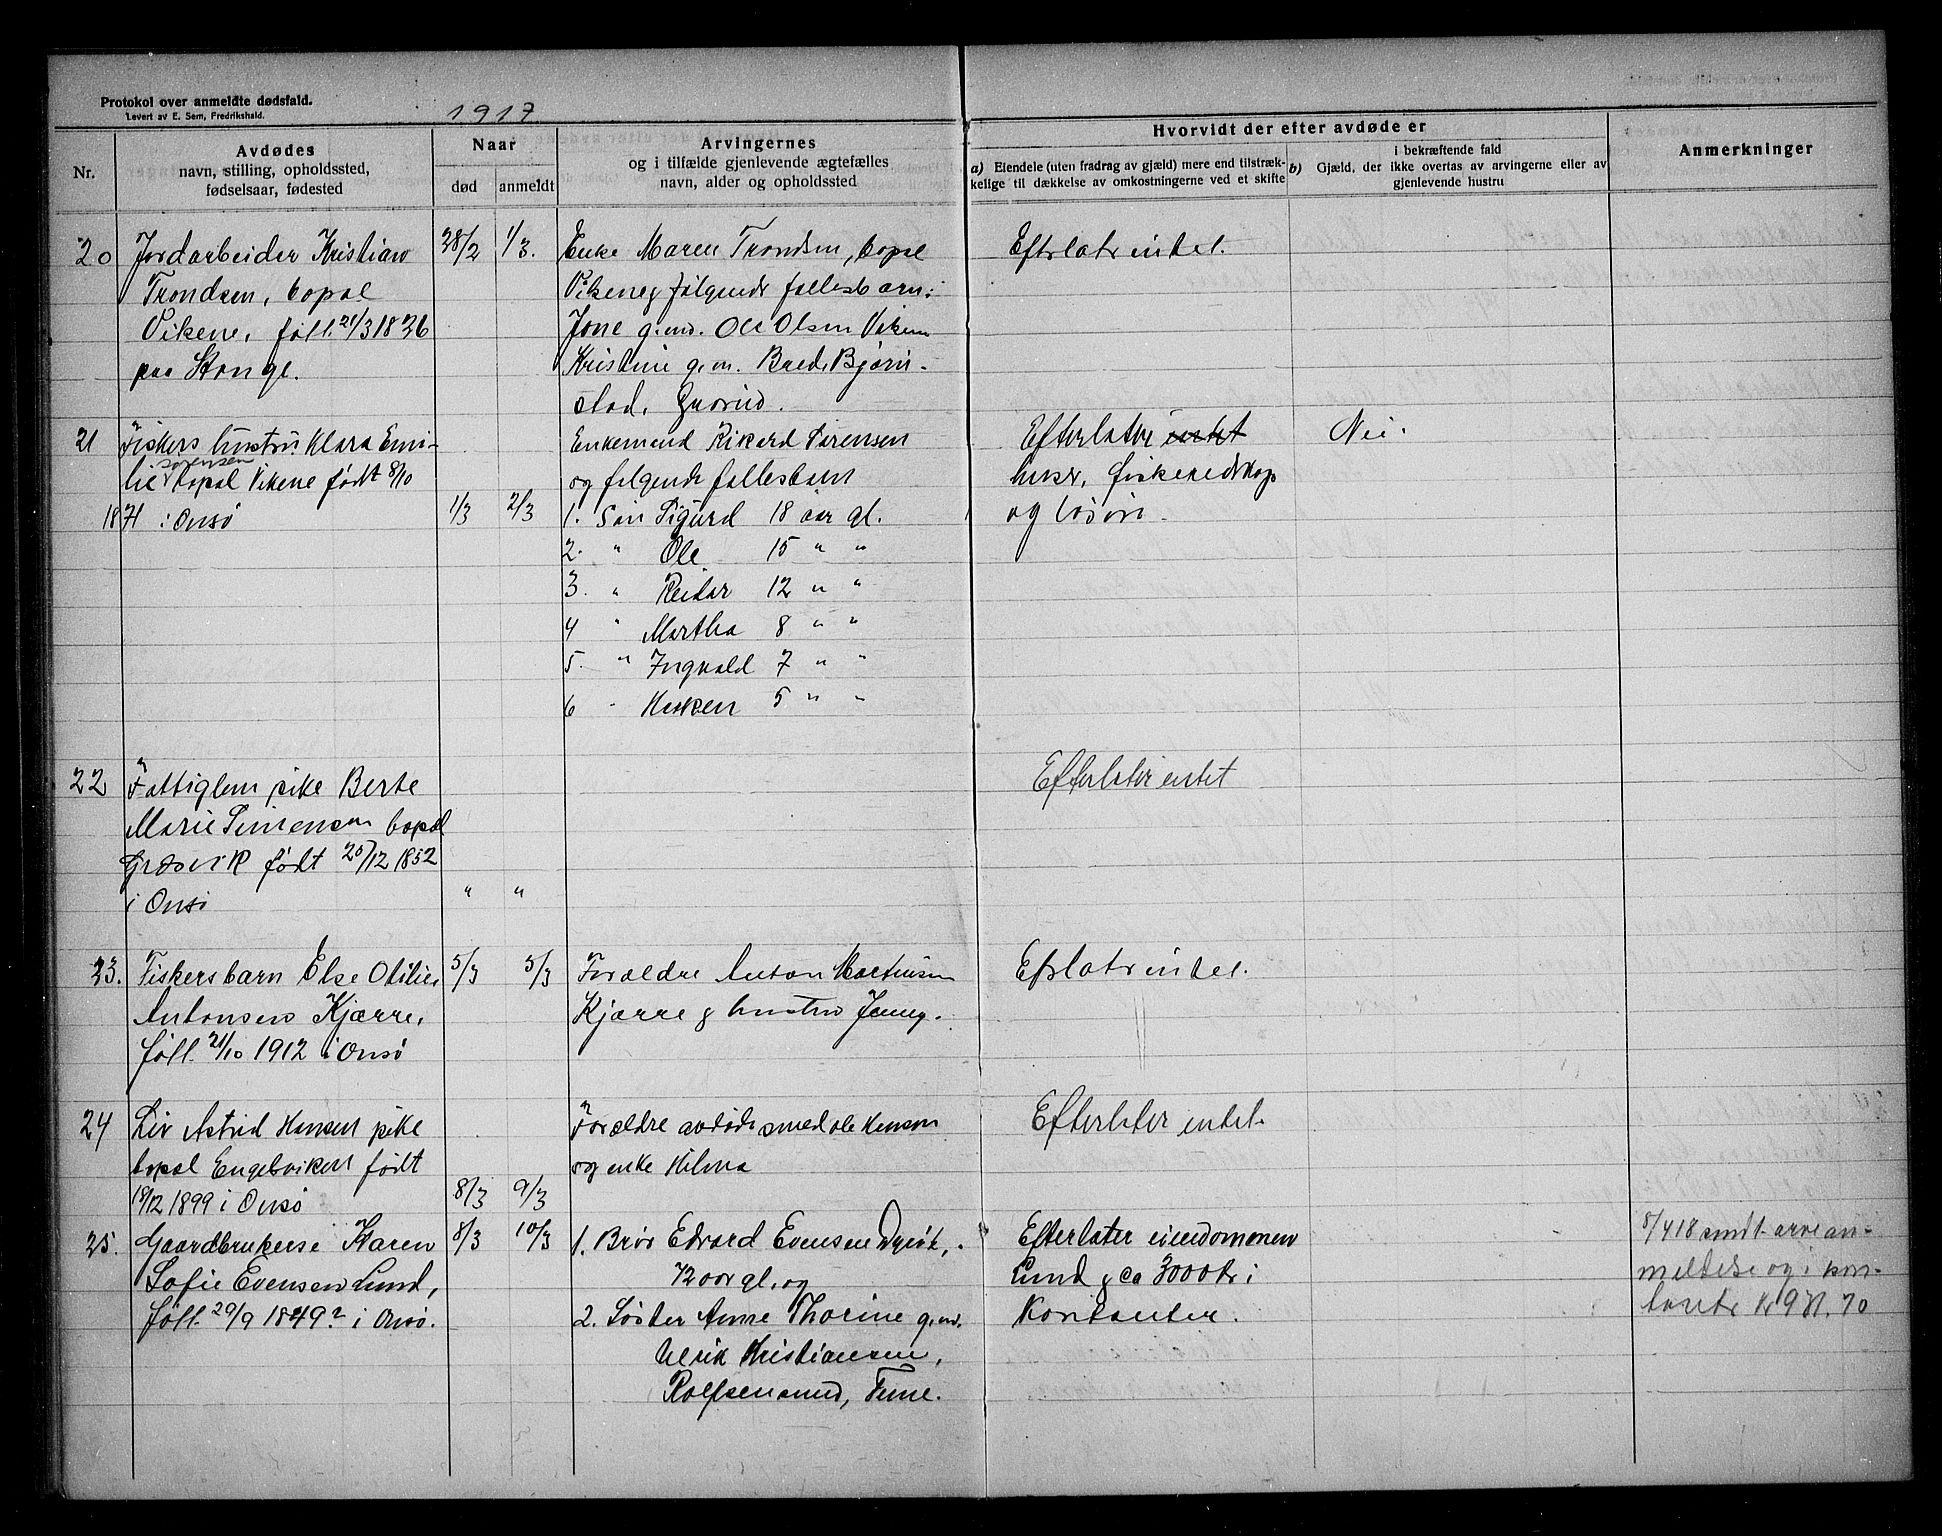 Protokol over anmeldte dødsfald.
Levert av E. Sem, Fredrikshald.
1917
Nr.
Avdødes
navn, stilling, opholdssted,
fødselsaar, fødested
Naar
død
anmeldt
Arvingernes
og i tilfælde gjenlevende ægtefælles
navn, alder og opholdssted
Hvorvidt der efter avdøde er
a) Eiendele (uten fradrag av gjæld) mere end tilstræk-
kelige til dækkelse av omkostningerne ved et skifte
i bekræftende fald
b) Gjæld, der ikke overtas av arvingerne eller av
gjenlevende hustru
Anmerkninger
20
Jordarbeider Kristian
Trondsen, bopæl
Vikene, født 21/3 1836
paa Stange.
28/2
1/3.
Enke Maren Trondsen, bopæl
Vikene & følgende fællesbarn:
Jone g.m. Ole Olsen Viken
Kristine g.m. Brede Bjørn-
stad,
Efterlater intet.
21
Fiskers hustru Klara Emi-
lie Sørensen bopæl Vikene født 8/10
1871 i Onsø
1/3
2/3
Enkemand Rikard Sørensen
og følgende fællesbarn
1. Søn Sigurd 18 aar gl.
2. " Ole 15 " "
3. " Reidar 12 " "
4 " Martha 8 " "
5. " Ingvald 7 " "
6 " Hakon 5 " "
Efterlater intet
huser, fiskeredskap
og løsøre.
Nei.
22
Fattiglem, pike Berte
Marie Simensen bopæl
Græsvik født 25/12 1852
i Onsø
"
"
Efterlater intet
23.
Fiskersbarn Else Otilie
Antonsen Kjærre,
født 21/10 1912 i Onsø
5/3
5/3
Forældre Anton Martinsen
Kjærre & hustru Jenny.
Efterlater intet.
24
Liv Astrid Hansen pike
bopæl Engelsviken født
18/12 1899 i Onsø
8/3
9/3
Forældre avdøde smed Ole Hansen
og enke Hilma
Efterlater intet.
25.
Gaardbrukerse Karen
Sofie Evensen Lund,
født 29/9 1849? i Onsø.
8/3
10/3
1. Bror Edvard Evensen Dyrøt,
72 aar gl. og
2. Søster Anne Thorine g.m.
Ulrik Kristiansen,
Rolfsen sund, Tune.
Efterlater eiendommen
Lund & ca 3000 kr i
Kontanter.
8/4 18 sendt arvean-
meldelse og i kon-
tante kr 971.70